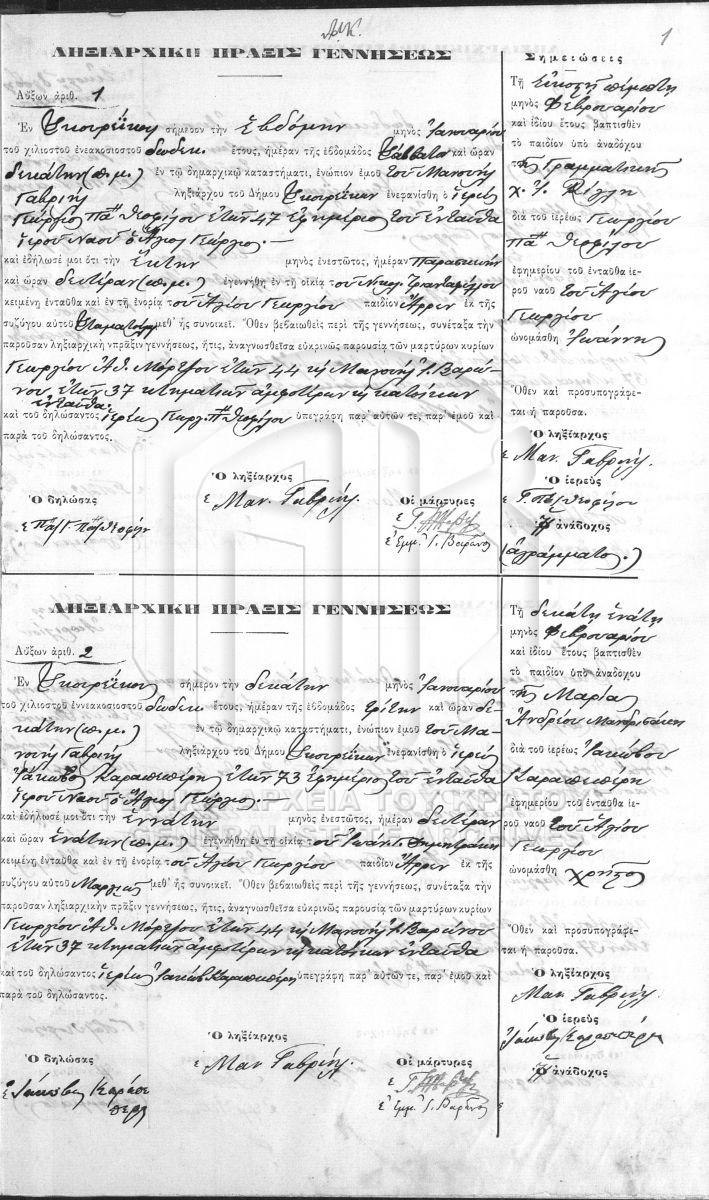 1
ΛΗΞΙΑΡΧΙΚΗ ΠΡΑΞΙΣ ΓΕΝΝΗΣΕΩΣ
Αὔξων ἀριθ. 1
Ἐν σήμερον τὴν Ἑβδόμην μηνὸς Ἰανουαρίου
τοῦ χιλιοστοῦ ἐνεακοσιοστοῦ δωδεκ. ἔτους, ἡμέραν τῆς ἑβδομάδος Σάββατον καὶ ὥραν
δεκάτην (π.μ.) ἐν τῷ δημαρχικῷ καταστήματι, ἐνώπιον ἐμοῦ τοῦ Μανουὴλ
Γαβριὴλ ληξιάρχου τοῦ Δήμου ἐνεφανίσθη ὁ ἱερεὺς
Γεώργιος Παπᾶ Θεοφίλου ἐτῶν 47 ἐφημέριος τοῦ ἐνταῦθα
ἱεροῦ Ναοῦ ὁ Ἅγιος Γεώργιος.—
καὶ ἐδήλωσέ μοι ὅτι τὴν ἕκτην μηνὸς ἐνεστῶτος, ἡμέραν Παρασκευὴν
καὶ ὥραν δευτέραν (π.μ.) ἐγεννήθη ἐν τῇ οἰκίᾳ τοῦ Νικολ. Τριανταφύλλου
κειμένῃ ἐνταῦθα καὶ ἐν τῇ ἐνορίᾳ τοῦ Ἁγίου Γεωργίου παιδίον Ἄρρεν ἐκ τῆς
συζύγου αὐτοῦ μεθ' ἧς συνοικεῖ. Ὅθεν βεβαιωθεὶς περὶ τῆς γεννήσεως, συνέταξα τὴν
παροῦσαν ληξιαρχικὴν πρᾶξιν γεννήσεως, ἥτις, ἀναγνωσθεῖσα εὐκρινῶς παρουσίᾳ τῶν μαρτύρων κυρίων
Γεωργίου Ἀθ. ἐτῶν 44 κ Μανουὴλ Γ. Βαρώ-
νου ἐτῶν 37 κτηματιῶν ἀμφοτέρων κ κατοίκων
ἐνταῦθα
καὶ τοῦ δηλώσαντος ἱερέως Γεωργ. Παπᾶ Θεοφίλου ὑπεγράφη παρ' αὐτῶν τε, παρ' ἐμοῦ καὶ
παρὰ τοῦ δηλώσαντος.
Ὁ ληξίαρχος
Μαν. Γαβριήλ.
Ὁ δηλώσας
Οἱ μάρτυρες
Ἐμμ. Γ. Βαρῶνος
Σημειώσεις
Τῇ εἰκοστῇ πέμπτῃ
μηνὸς Φεβρουαρίου
καὶ ἰδίου ἔτους βαπτισθὲν
τὸ παιδίον ὑπὸ ἀναδόχου
τῆς Γραμματικῆς
διὰ τοῦ ἱερέως Γεωργίου
Παπᾶ Θεοφίλου
ἐφημερίου τοῦ ἐνταῦθα ἱε-
ροῦ ναοῦ τοῦ Ἁγίου
Γεωργίου
ὠνομάσθη Ἰωάννης
Ὅθεν καὶ προσυπογράφε-
ται ἡ παροῦσα.
Ὁ ληξίαρχος
Μαν. Γαβριήλ.
Ὁ ἱερεὺς
Ἡ ἀνάδοχος
(ἀγράμματος.)
ΛΗΞΙΑΡΧΙΚΗ ΠΡΑΞΙΣ ΓΕΝΝΗΣΕΩΣ
Αὔξων ἀριθ. 2
Ἐν σήμερον τὴν δεκάτην μηνὸς Ἰανουαρίου
τοῦ χιλιοστοῦ ἐννεακοσιοστοῦ δωδεκ. ἔτους, ἡμέραν τῆς ἑβδομάδος Τρίτην καὶ ὥραν δε-
κάτην (π.μ.) ἐν τῷ δημαρχικῷ καταστήματι, ἐνώπιον ἐμοῦ τοῦ Μα-
νουὴλ Γαβριὴλ ληξιάρχου τοῦ Δήμου ἐνεφανίσθη ὁ ἱερεὺς
Ἰάκωβος Καραπιπέρης ἐτῶν 73 ἐφημέριος τοῦ ἐνταῦθα
ἱεροῦ Ναοῦ ὁ Ἅγιος Γεώργιος.—
καὶ ἐδήλωσέ μοι ὅτι τὴν ἐννάτην μηνὸς ἐνεστῶτος, ἡμέραν δευτέραν
καὶ ὥραν ἐνάτην (π.μ.) ἐγεννήθη ἐν τῇ οἰκίᾳ τοῦ Ἰωάν. Δημητράκη
κειμένῃ ἐνταῦθα καὶ ἐν τῇ ἐνορίᾳ τοῦ Ἁγίου Γεωργίου παιδίον Ἄρρεν ἐκ τῆς
συζύγου αὐτοῦ μεθ' ἧς συνοικεῖ. Ὅθεν βεβαιωθεὶς περὶ τῆς γεννήσεως, συνέταξα τὴν
παροῦσαν ληξιαρχικὴν πρᾶξιν γεννήσεως, ἥτις, ἀναγνωσθεῖσα εὐκρινῶς παρουσίᾳ τῶν μαρτύρων κυρίων
Γεωργίου Ἀθ. ἐτῶν 44 κ Μανουὴλ Γ. Βαρώνου
ἐτῶν 37 κτηματιῶν ἀμφοτέρων κ κατοίκων ἐνταῦθα
καὶ τοῦ δηλώσαντος ἱερέως Ἰακώβ. Καραπιπέρη ὑπεγράφη παρ' αὐτῶν τε, παρ' ἐμοῦ καὶ
παρὰ τοῦ δηλώσαντος.
Ὁ ληξίαρχος
Μαν. Γαβριήλ.
Ὁ δηλώσας
Οἱ μάρτυρες
Ἐμμ. Γ. Βαρῶνος
Τῇ δεκάτῃ ἐνάτῃ
μηνὸς Φεβρουαρίου
καὶ ἰδίου ἔτους βαπτισθὲν
τὸ παιδίον ὑπὸ ἀναδόχου
τῆς Μαρίας
Ἀνδρέου
διὰ τοῦ ἱερέως Ἰακώβου
Καραπιπέρη
ἐφημερίου τοῦ ἐνταῦθα ἱε-
ροῦ ναοῦ τοῦ Ἁγίου
Γεωργίου
ὠνομάσθη Χρῆστος
Ὅθεν καὶ προσυπογράφε-
ται ἡ παροῦσα.
Ὁ ληξίαρχος
Μαν. Γαβριήλ.
Ὁ ἱερεὺς
Ἡ ἀνάδοχος
ΑΡΧΕΙΑ ΤΟΥ ΚΡΑΤΟΥΣ
GENERAL STATE ARCHIVES